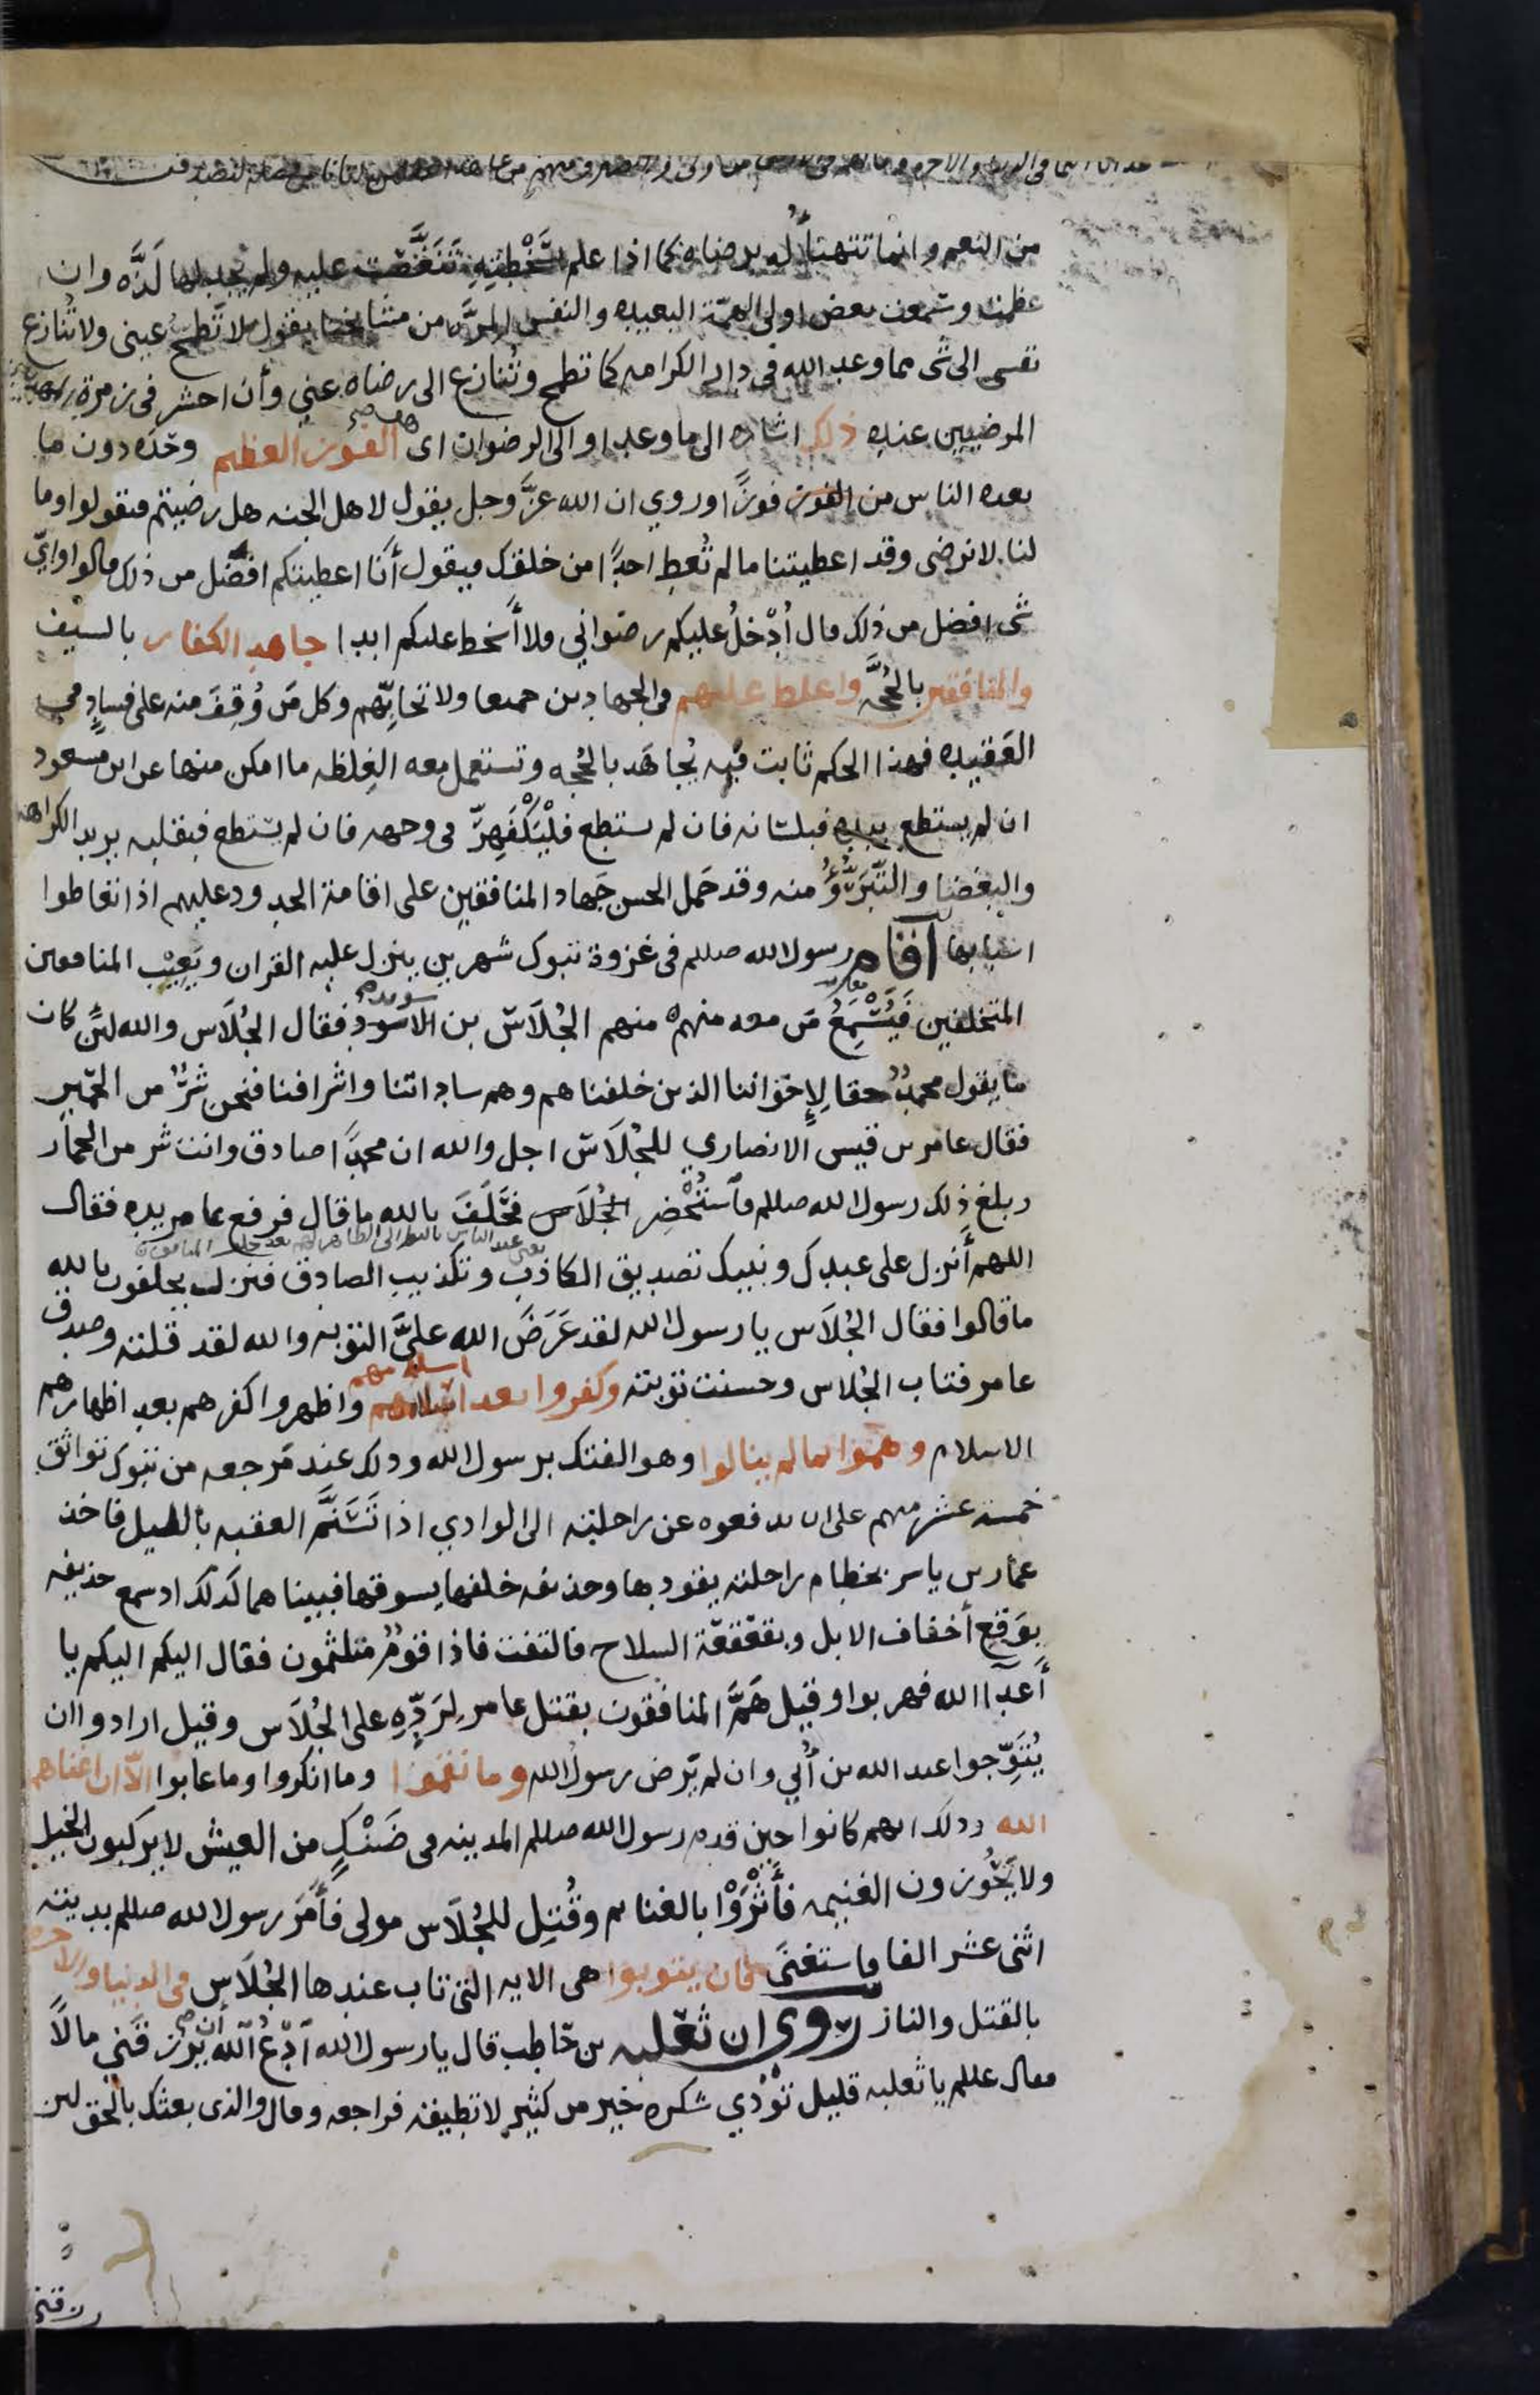 من النعم وانما تتهنأ له برضاه كما اذا علم بسَخْطَتِهِ تَنَغَّصَت عليه ولم يجد لها لَذّه وان
عظمت وسمعت بعض اولي الهمّة البعيده والنفس المرّه من مشايخنا يقول لا تطمح عيني ولا تُنازع
نفسي الى شي مما وعد الله في دار الكرامه كما تطمح وتُنازع الى رضاه عني وأن احشر في زمرة
المرضيين عنده ذلك اشاره الى ما وعد او الى الرضوان اى هو الفوز العظيم وحده دون ما
يعده الناس من الفوز فوزًا وروي ان الله عزّ وجل يقول لاهل الجنه هل رضيتم فيقولوا وما
لنا لا نرضى وقد اعطيتنا ما لم تُعطِ احدًا من خلقك فيقول أنا اعطيتكم افضل من ذلك قالوا واىّ
شي افضل من ذلك قال أُدْخِلُ عليكم رضواني فلا أسخط عليكم ابدا جاهدِ الكفار بالسيف
والمنافقين بالحُجَّه واغلظ عليهم في الجهادين جميعا ولا تحابِّهم وكل مَن وُقِفَ منه على فسادٍ في
العقيده فهذا الحكم ثابت فيه يُجاهَد بالحُجه وتستعمل معه الغِلظه ما امكن منها عن ابن مسعود
ان لم يستطع بيده فبلسانه فان لم يستطع فلْيَكْفَهِرّ في وجهه فان لم يستطع فبقلبه يريد الكراهه
والبغضا والتّبَرُّؤ منه وقد حَمل الحسن جَهاد المنافقين على اقامة الحدود عليهم اذا تعاطوا
اسبابها أقام رسول الله صللم في غزوة تبوك شهرين ينزل عليه القران ويَعِيْب المنافقين
المتخلفين فَيَسْمَعُ مَن معه منهم منهم الجُلَاسّ بن سويد فقال الجُلَاس والله لئن كان
ما يقول محمدٌ حقا لإخواننا الذين خلفناهم وهم ساداتنا واشرافنا فنحن شرٌّ من الحمير
فقال عامر بن قيس الانصاري للجُلَاسّ اجل والله ان محمدًا صادق وانت شر من الحمار
وبلغ ذلك رسول الله صللم فاستُحْضِر الجُلَاس فحَلَفَ بالله ما قال فرفع عامر يده فقال
اللهم أنزل على عبدك ونبيك تصديق الكاذب وتكذيب الصادق فنزلت يحلفون بالله
ما قالوا فقال الجُلَاس يا رسول الله لقد عَرَضَ الله علىَّ التوبه والله لقد قلته وصدق
عامر فتاب الجُلاس وحسنت توبته وكفروا بعد اسلامهم واظهروا كفرهم بعد اظهارهم
الاسلام وهَمّوا بما لم ينالوا وهو الفتك برسول الله وذلك عند مَرجعه من تبوك تواثق
خمسة عشر منهم على ان يدفعوه عن راحلته الى الوادي اذا تَسَنَّم العقبه بالليل فاخذ
عمار بن ياسر بخطام راحلته يقودها وحذيفه خلفها يسوقها فبيناهما كذلك اذ سمع حذيفه
بوَقعِ أخفاف الابل وبقَعْقَعَة السلاح فالتفت فاذا قومٌ متلثمون فقال اليكم اليكم يا
أعدآ الله فهربوا وقيل هَمَّ المنافقون بقتل عامر لِرَدِّهِ على الجُلَاس وقيل ارادوا ان
يُتَوِّجوا عبد الله بن أُبي وان لم يَرض رسول الله وما نقموا وما انكروا وما عابوا الّا ان اغناهم
الله وذلك انهم كانوا حين قدم رسول الله صللم المدينه في ضَنْكٍ من العيش لا يركبون الخيل
ولا يَحُوزون الغنيمه فأَثْرَوْا بالغنائم وقُتِل للجُلَاس مولى فأَمَرَ رسول الله صللم بديته
اثنى عشر الفا فاستغنَى فان يتوبوا هي الايه التي تاب عندها الجُلَاس في الدنيا والاخره
بالقتل والنار رُوى ان ثعلبه بن حّاطب قال يا رسول الله ادْعُ اللّهَ أن يرزقني مالًا
فقال عللم يا ثعلبه قليل تؤدي شكره خير من كثير لا تطيقه فراجعه وقال والذى بعثك بالحق لين
رزقني